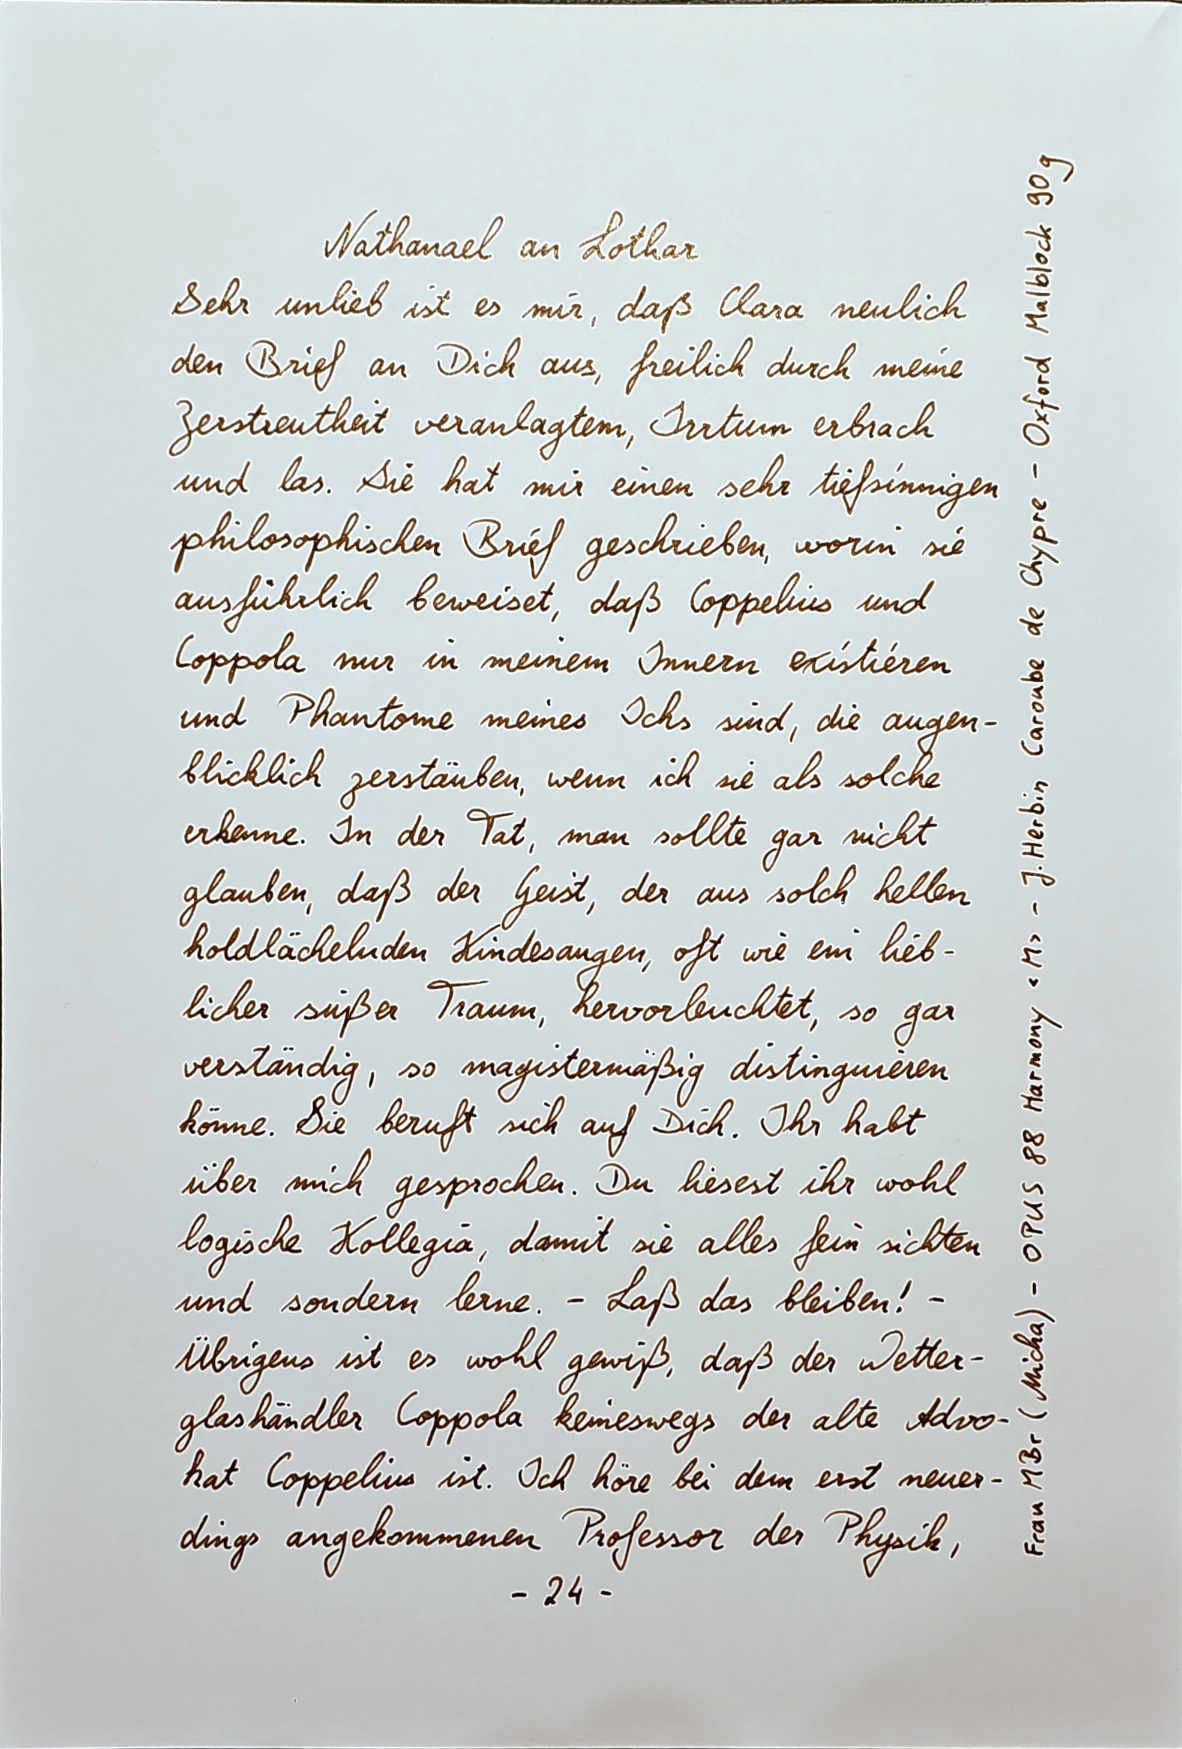 Nathanael an Lothar
Sehr unlieb ist es mir, daß Clara neulich
den Brief an Dich aus, freilich durch meine
Zerstreutheit veranlagtem, Irrtum erbrach
und las. Sie hat mir einen sehr tiefsinnigen
philosophischen Brief geschrieben, worin sie
ausführlich beweiset, daß Coppelius und
Coppola nur in meinem Innern existieren
und Phantome meines Ichs sind, die augen-
blicklich zerstäuben, wenn ich sie als solche
erkenne. In der Tat, man sollte gar nicht
glauben, daß der Geist, der aus solch hellen
holdlächelnden Kindesaugen, oft wie ein lieb-
licher süßer Traum, hervorleuchtet, so gar
verständig, so magistermäßig distinguieren
könne. Sie beruft sich auf Dich. Ihr habt
über mich gesprochen. Du liesest ihr wohl
logische Kollegia, damit sie alles fein sichten
und sondern lerne. - Laß das bleiben! -
Übrigens ist es wohl gewiß, daß der Wetter-
glashändler Coppola keineswegs der alte Advo-
kat Coppelius ist. Ich höre bei dem erst neuer-
dings angekommenen Professor der Physik,
- 24 -
Frau MBr (Micha) - OPUS 88 Harmony <M> - J. Herbin Caroube de Chypre - Oxford Malblock 90g